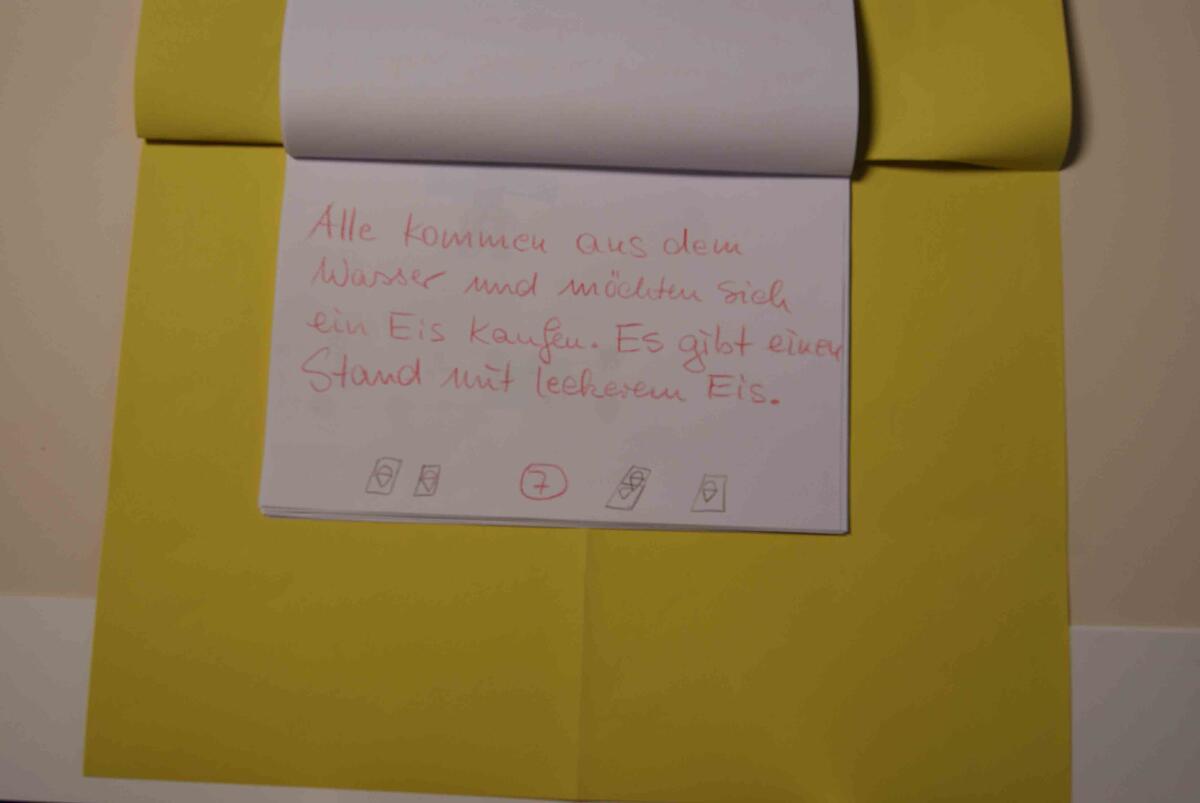 Alle kommen aus dem
Wasser und möchten sich
ein Eis kaufen. Es gibt einen
Stand mit leckerem Eis.
7